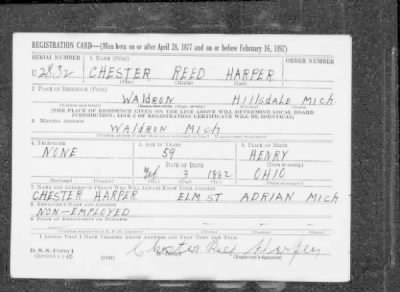 REGISTRATION CARD—(Men born on or after April 28, 1877 and on or before February 16, 1897)
SERIAL NUMBER 1. NAME (Print) ORDER NUMBER
U 2832 CHESTER REED HARPER
(First) (Middle) (Last)
2. PLACE OF RESIDENCE (Print)
WALDRON HILLSDALE MICH
[THE PLACE OF RESIDENCE GIVEN ON THE LINE ABOVE WILL DETERMINE LOCAL BOARD
JURISDICTION; LINE 2 OF REGISTRATION CERTIFICATE WILL BE IDENTICAL]
3. MAILING ADDRESS
WALDRON MICH
4. TELEPHONE 5. AGE IN YEARS 6. PLACE OF BIRTH
NONE 59 HENRY
DATE OF BIRTH (Town or county)
Feb 3 1882 OHIO
(Exchange) (Number) (Mo.) (Day) (Yr.) (State or country)
7. NAME AND ADDRESS OF PERSON WHO WILL ALWAYS KNOW YOUR ADDRESS
CHESTER HARPER ELM ST ADRIAN MICH
8. EMPLOYER'S NAME AND ADDRESS
NON-EMPLOYED
9. PLACE OF EMPLOYMENT OR BUSINESS
I AFFIRM THAT I HAVE VERIFIED ABOVE ANSWERS AND THAT THEY ARE TRUE.
D. S. S. Form 1
Chester Reed Harper
(Registrant's signature)